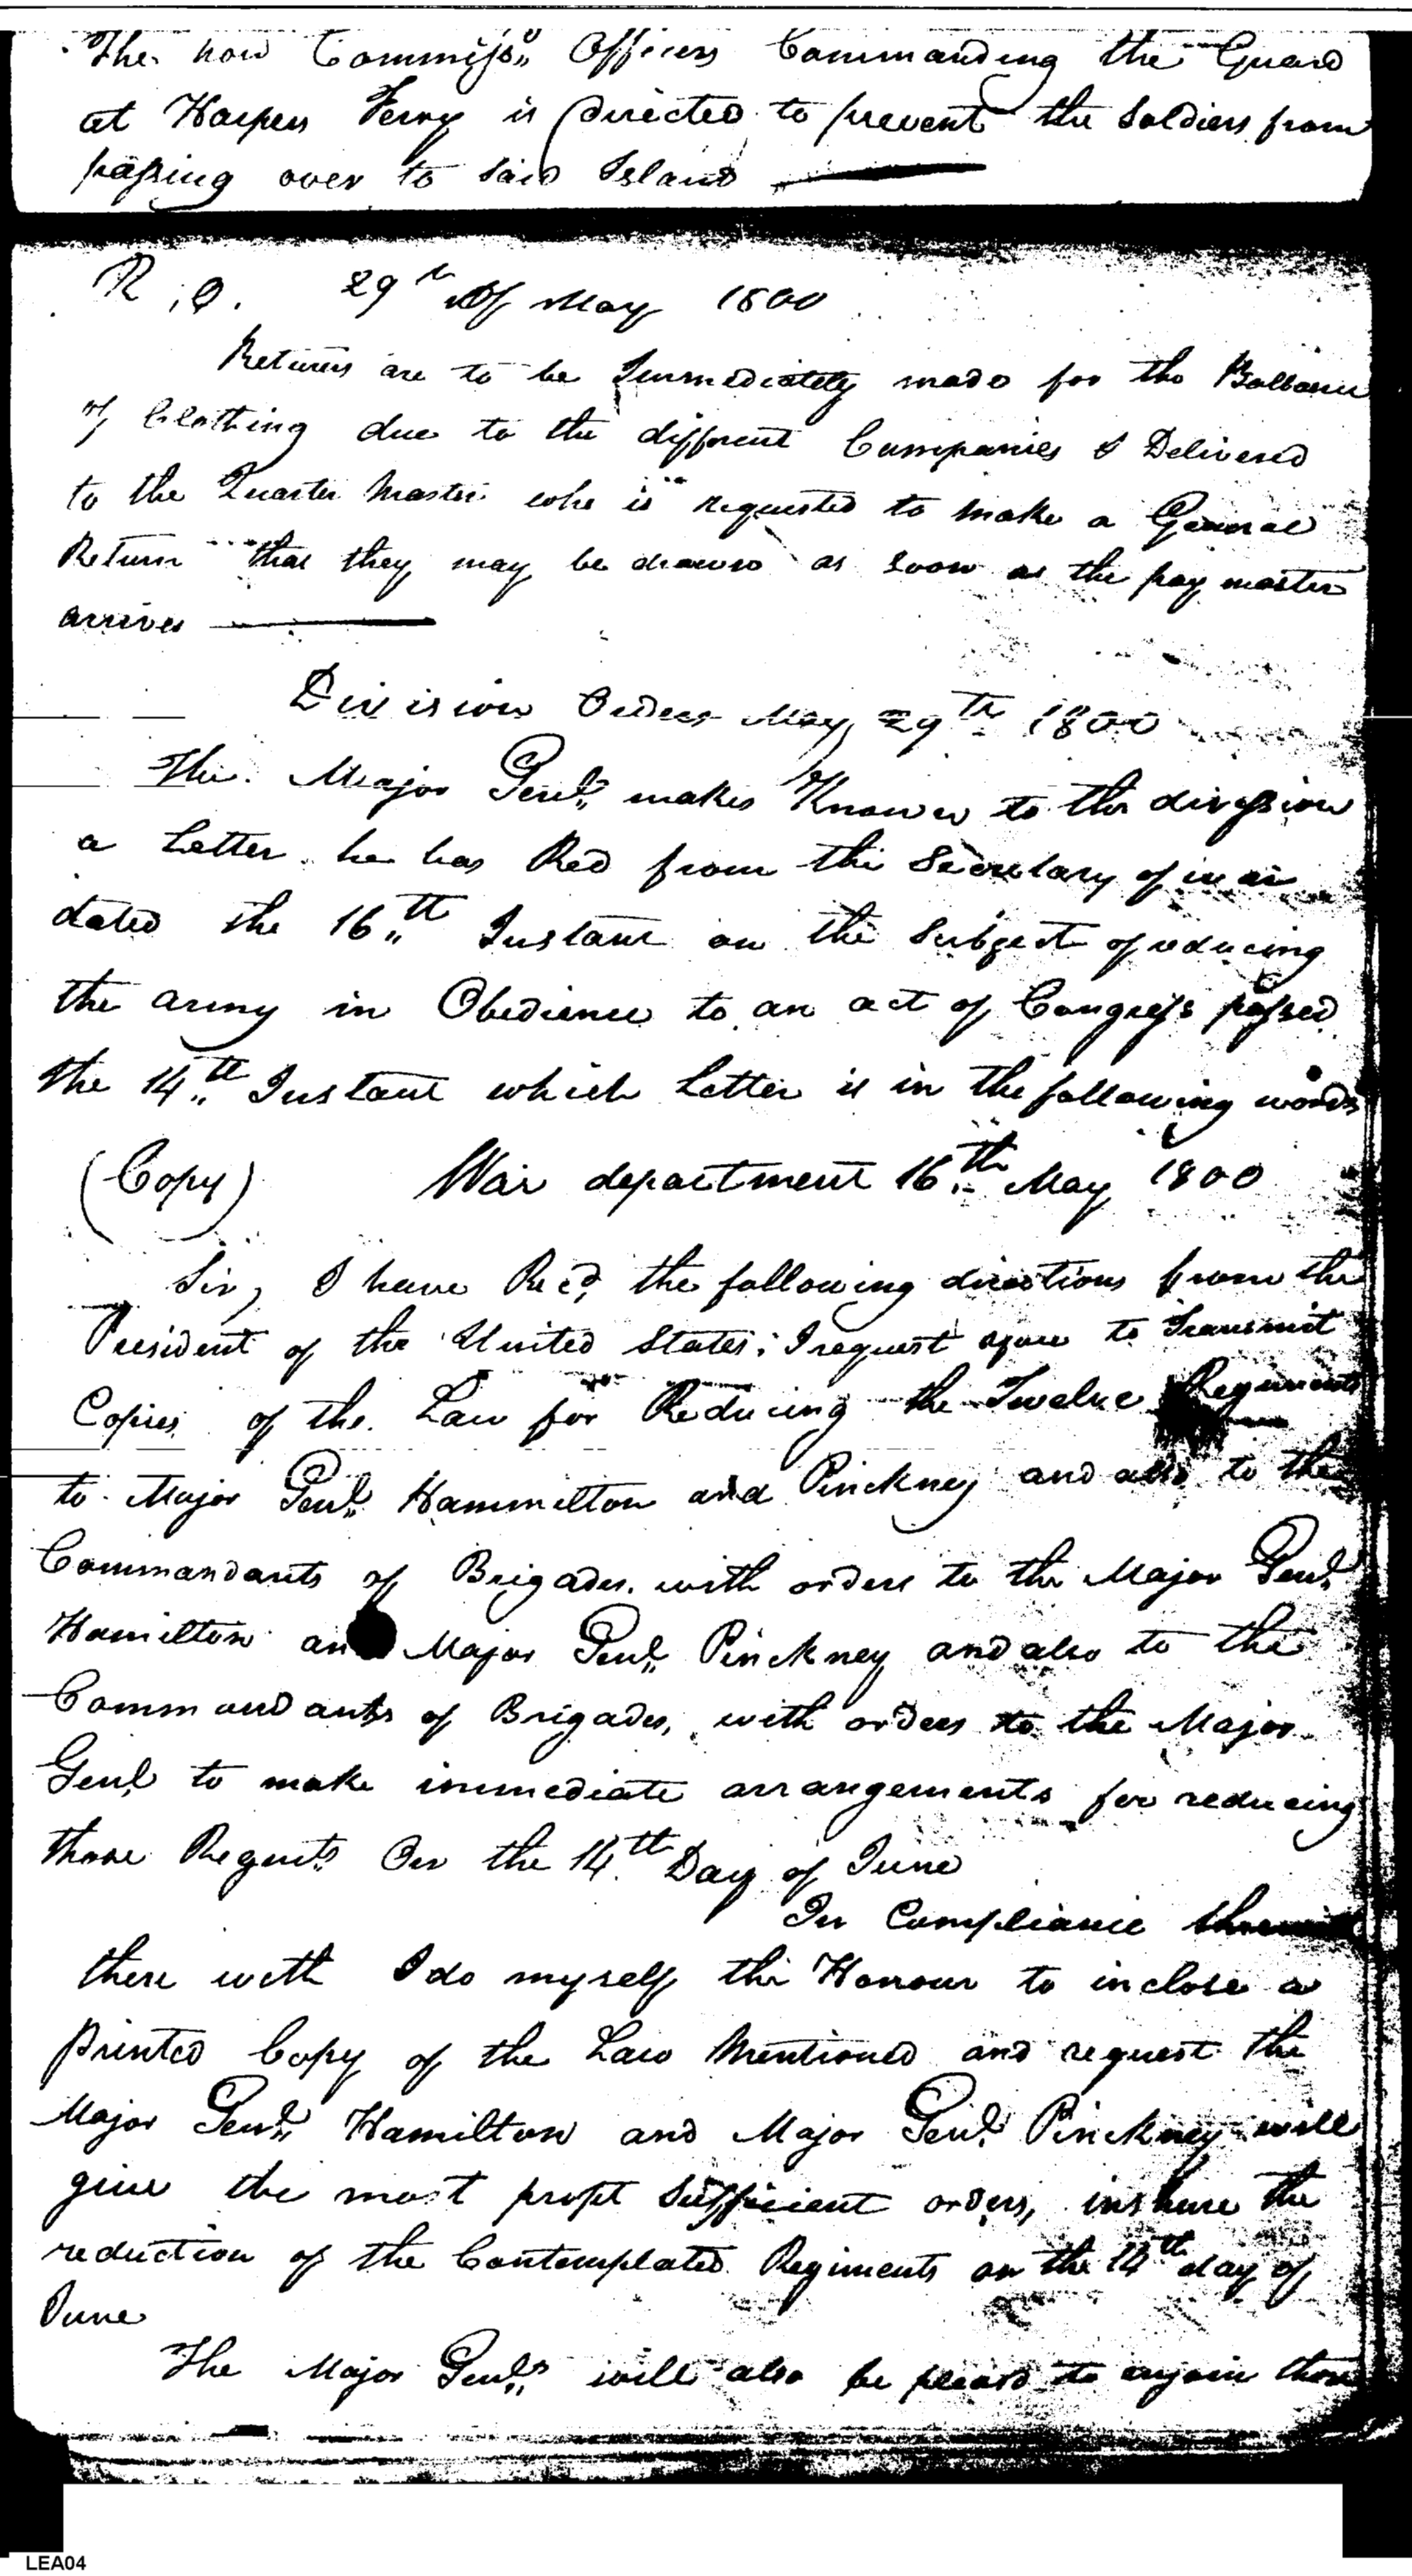 The non Commissd. Officers Commanding the Guard
at Harpers Ferry is directed to prevent the Soldiers from
passing over to Said Island
R. O. 29th Of May 1800
Returns are to be Immediately made for the Ballance
of Clothing due to the different Companies & Delivered
to the Quarter Master who is requested to make a General
Return that they may be drawn as soon as the pay master
arrives
Division Orders May 29th 1800
The Major Genl. makes Known to the division
a Letter he has Red from the Secretary of war
dated the 16th Instant on the Subject of reducing
the army in Obedience to an act of Congress passed
the 14th Instant which Letter is in the following words
(Copy) War department 16th May 1800
Sir, I have Recd. the following directions from the
President of the United States; I request you to Transmit
Copies of the Law for Reducing the Twelve Regiments
to Major Genl. Hammilton and Pinckney and also to the
Commandants of Brigades, with orders to the Major Genl.
Hamilton and Major Genl. Pinckney and also to the
Commandants of Brigades, with orders to the Major
Genl. to make immediate arrangements for reducing
those Regmts. On the 14th Day of June
In Compliance
there with I do myself the Honour to inclose a
printed Copy of the Law Mentioned and request the
Major Genl. Hamilton and Major Genl. Pinckney will
give the most propt Sufficient orders, inshure the
reduction of the Contemplated Regiments on the 14th day of
June
The Major Genls. will also be pleasd to enjoin those
LEA04